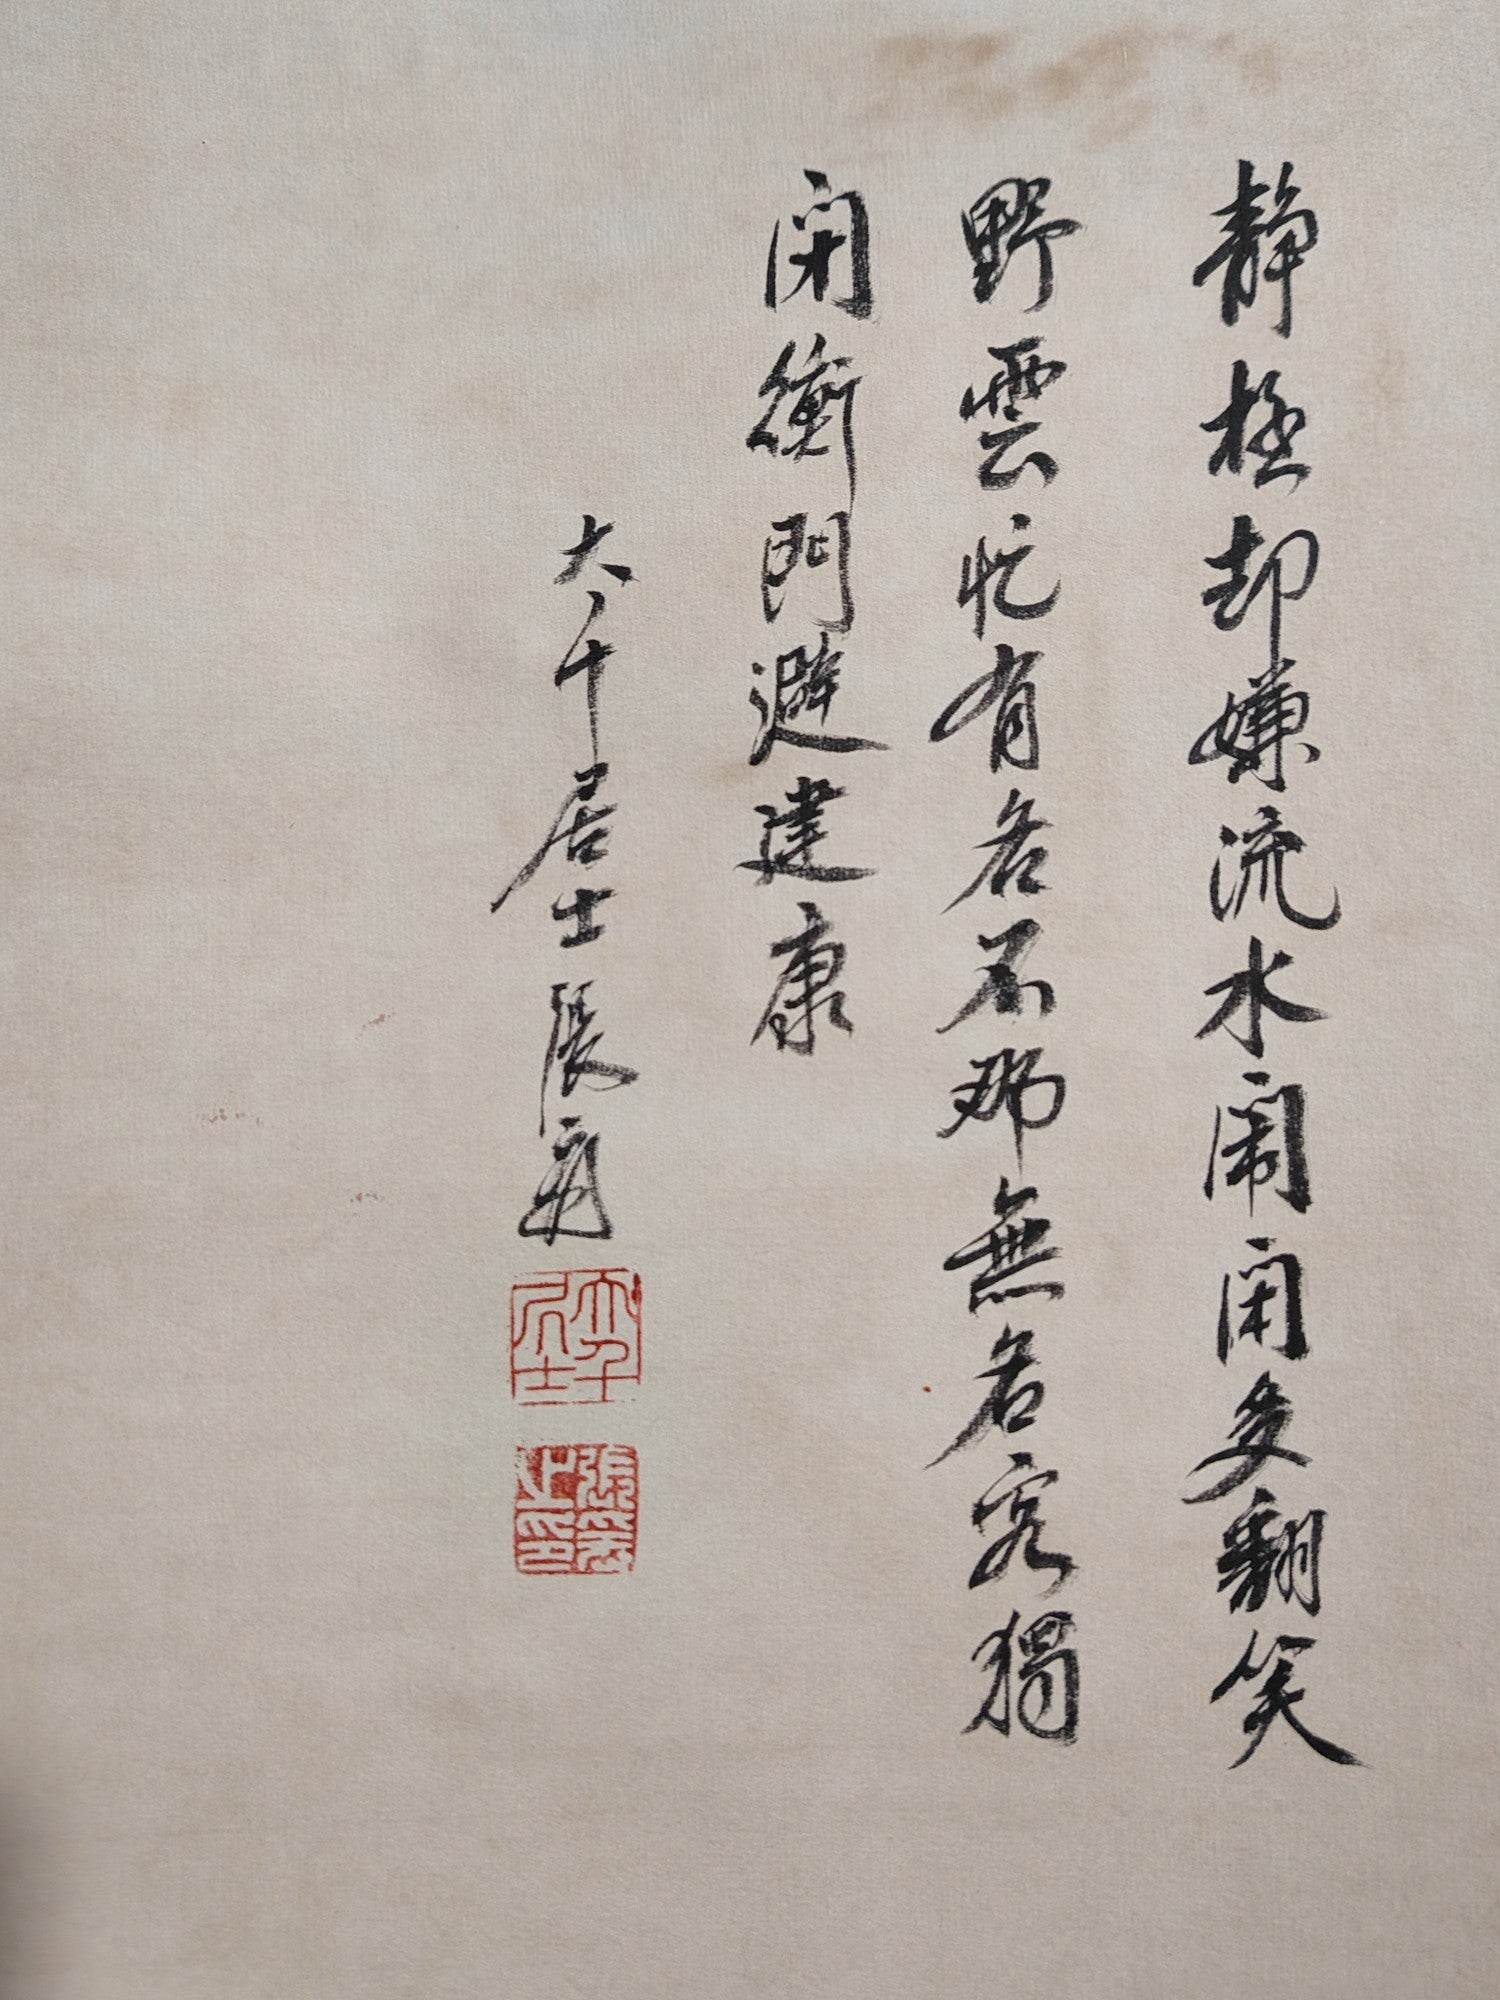 靜極却嫌流水鬧閑多翻笑
野雲忙有名不那無名客獨
閉衡門避建康
大千居士張爰
大千居士
張爰之印